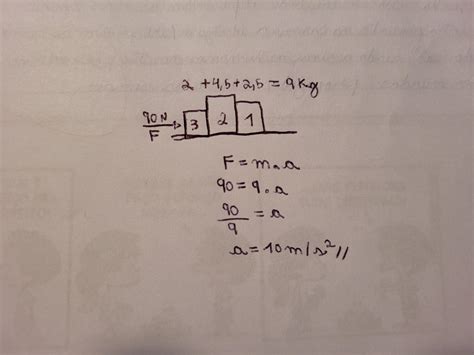 2 + 4,5 + 2,5 = 9 Kg
90 N
F
3 2 1
F = m . a
90 = 9 . a
90/9 = a
a = 10 m/s² //